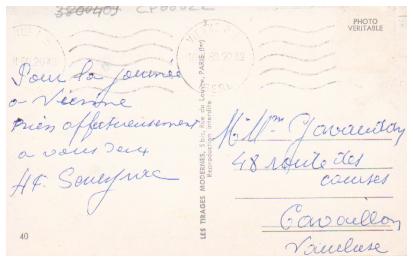 3800409 CP00022
3.
PHOTO
VERITABLE
Pour la journée
a Vienne
bien affectueusement
a vous deux
LES TIRAGES MODERNES, 5 bis, Rue du Louvre, PARIS (Iᵉʳ)
Reproduction interdite
M. Mᵐᵉ
48 route des
courses
Cavaillon
Vaucluse
40